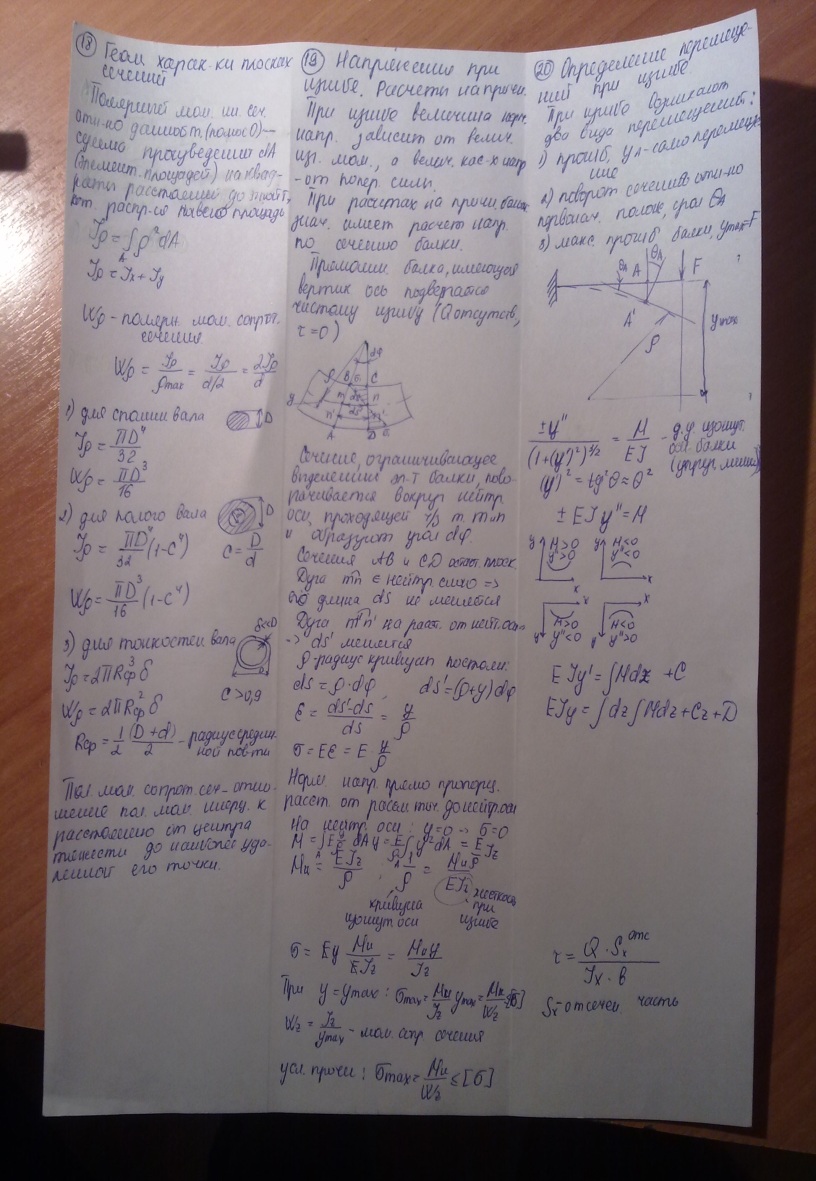 18 Геом харак-ки плоских
сечений
Полярный мом. ин. сеч.
отн-но данной т. (полюс О) —
сумма произведению dA
(элемент. площадей) на квад-
раты расстояний до этой т,
кот. распр-ся по всей площади
Jρ = ∫ρ²dA
A
Jρ = Jx + Jy
Wρ - полярн. мом. сопрот.
сечения
Wρ = Jρ/ρmax = Jρ/(d/2) = 2Jρ/d
1) для сплошн вала
D
Jρ = ПD⁴/32
Wρ = ПD³/16
2) для полого вала
D
Jρ = ПD⁴/32 (1-C⁴) C = D/d
Wρ = ПD³/16 (1-C⁴)
3) для тонкостен вала
δ<<D
Jρ = 2ПRср³ δ
C > 0,9
Wρ = 2ПRср² δ
Rср = 1/2 (D+d)/2 - радиус средин-
ной пов-ти
Пол. мом. сопрот. сеч - отно-
шение пол. мом. инерц. к
расстоянию от центра
тяжести до наиболее уда-
ленной его точки.
19 Напряжения при
изгибе. Расчеты на прочн.
При изгибе величина норм.
напр. зависит от велич.
изг. мом., а велич. кас-х напр
- от попер. силы.
При расчетах на прочн балок
знач. имеет расчет напр.
по сечению балки.
Прямолин. балка, имеющая
вертик ось подвергается
чистому изгибу (Q отсутств,
τ = 0)
dφ
ρ B C
y m n
A D
Сечение, ограничивающее
выделенный эл-т балки, пово-
рачивается вокруг нейтр
оси, проходящей ч/з т. m и n
и образуют угол dφ.
Сечения AB и CD остат. плоск.
Дуга mn ∈ нейтр слою =>
его длина ds не меняется
Дуга m'n' на расст. от нейт. оси
-> ds' меняется
ρ - радиус кривизны постоян:
ds = ρ·dφ, ds' = (ρ+y)dφ
ε = (ds'-ds)/ds = y/ρ
σ = Eε = E·y/ρ
Норм напр. прямо пропорц.
расст. от рассм точ. до нейтр. оси
На нейтр оси: y=0 -> σ=0
M = ∫E y/ρ dA y = E/ρ ∫y²dA = E/ρ Jz
Mи = EJz/ρ ; 1/ρ = Mи/EJz
кривизна
изогнут оси
жесткость
при
изгибе
σ = Ey Mи/EJz = Mиy/Jz
При y = ymax: σmax = Mи/Jz ymax = Mи/Wz ≤ [σ]
Wz = Jz/ymax - мом. сопр сечения
усл. прочн: σmax = Mи/Wz ≤ [σ]
20 Определение перемеще-
ний при изгибе.
При изгибе возникают
два вида перемещений:
1) прогиб, yA - само перемещ-
ние
2) поворот сечения отн-но
первонач. полож, угол θA
3) макс. прогиб балки, ymax F
θA A θA F
A' ymax
ρ
±y''/(1+(y')²)^3/2 = M/EJ - д.у. изогнут.
оси балки
(упруг. линии)
(y')² = tg²θ ≈ θ²
± EJy'' = M
y M>0 y''>0 x
y M<0 y''<0 x
x M>0 y''<0 y
x M<0 y''>0 y
EJy' = ∫Mdz + C
EJy = ∫dz∫Mdz + Cz + D
τ = Q·Sx^отс/(Jx·b)
Sx - отсечен часть